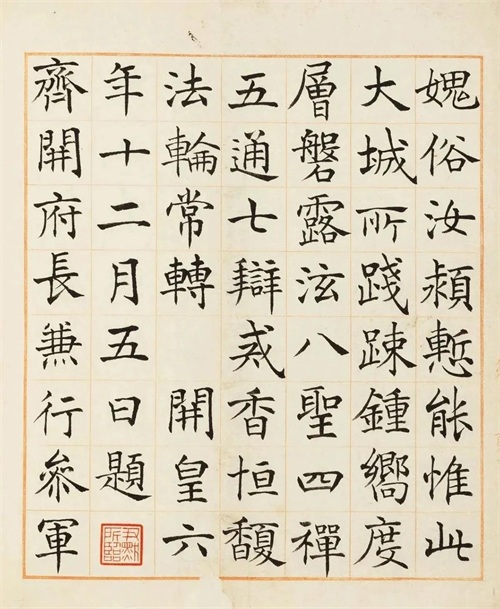 媿俗汝潁慙能惟此
大城所踐踈鍾嚮度
層磐露泫八聖四禪
五通七辯戒香恒馥
法輪常轉 開皇六
年十二月五日題
齊開府長兼行參軍
尹默所臨